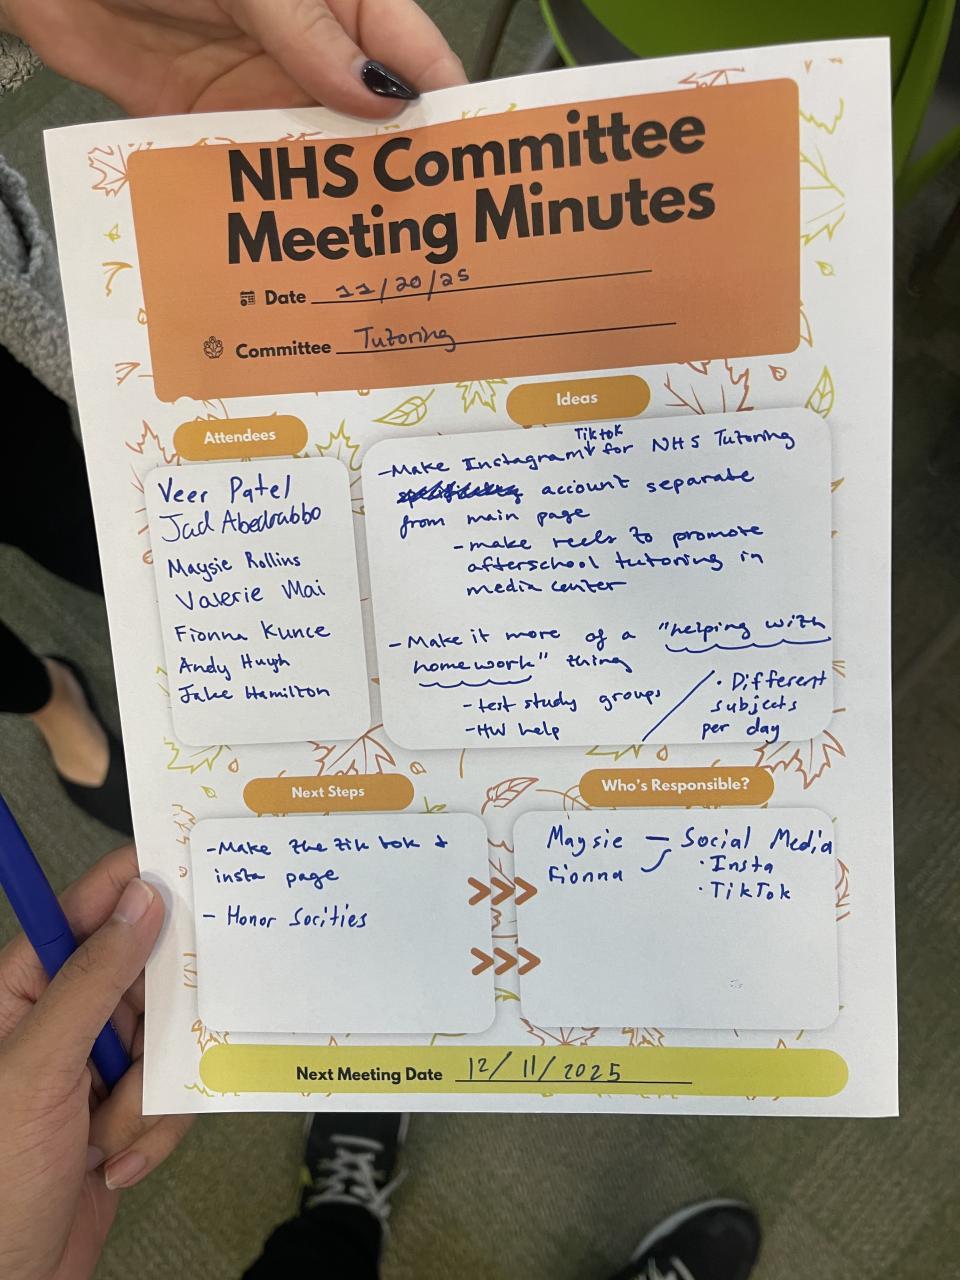 NHS Committee
Meeting Minutes
Date 11/20/25
Committee Tutoring
Attendees
Veer Patel
Jad Abedrabbo
Maysie Rollins
Valerie Mai
Fionna Kunce
Andy Huyh
Jake Hamilton
Ideas
Tiktok
-Make Instagram↓ for NHS Tutoring
account separate
from main page
- make reels to promote
afterschool tutoring in
media center
- Make it more of a "helping with
homework" thing
- test study groups
-HW help
· Different
subjects
per day
Next Steps
-Make the tik tok +
insta page
- Honor Socities
Who's Responsible?
Maysie — Social Media
Fionna
· Insta
· TikTok
Next Meeting Date 12/11/2025